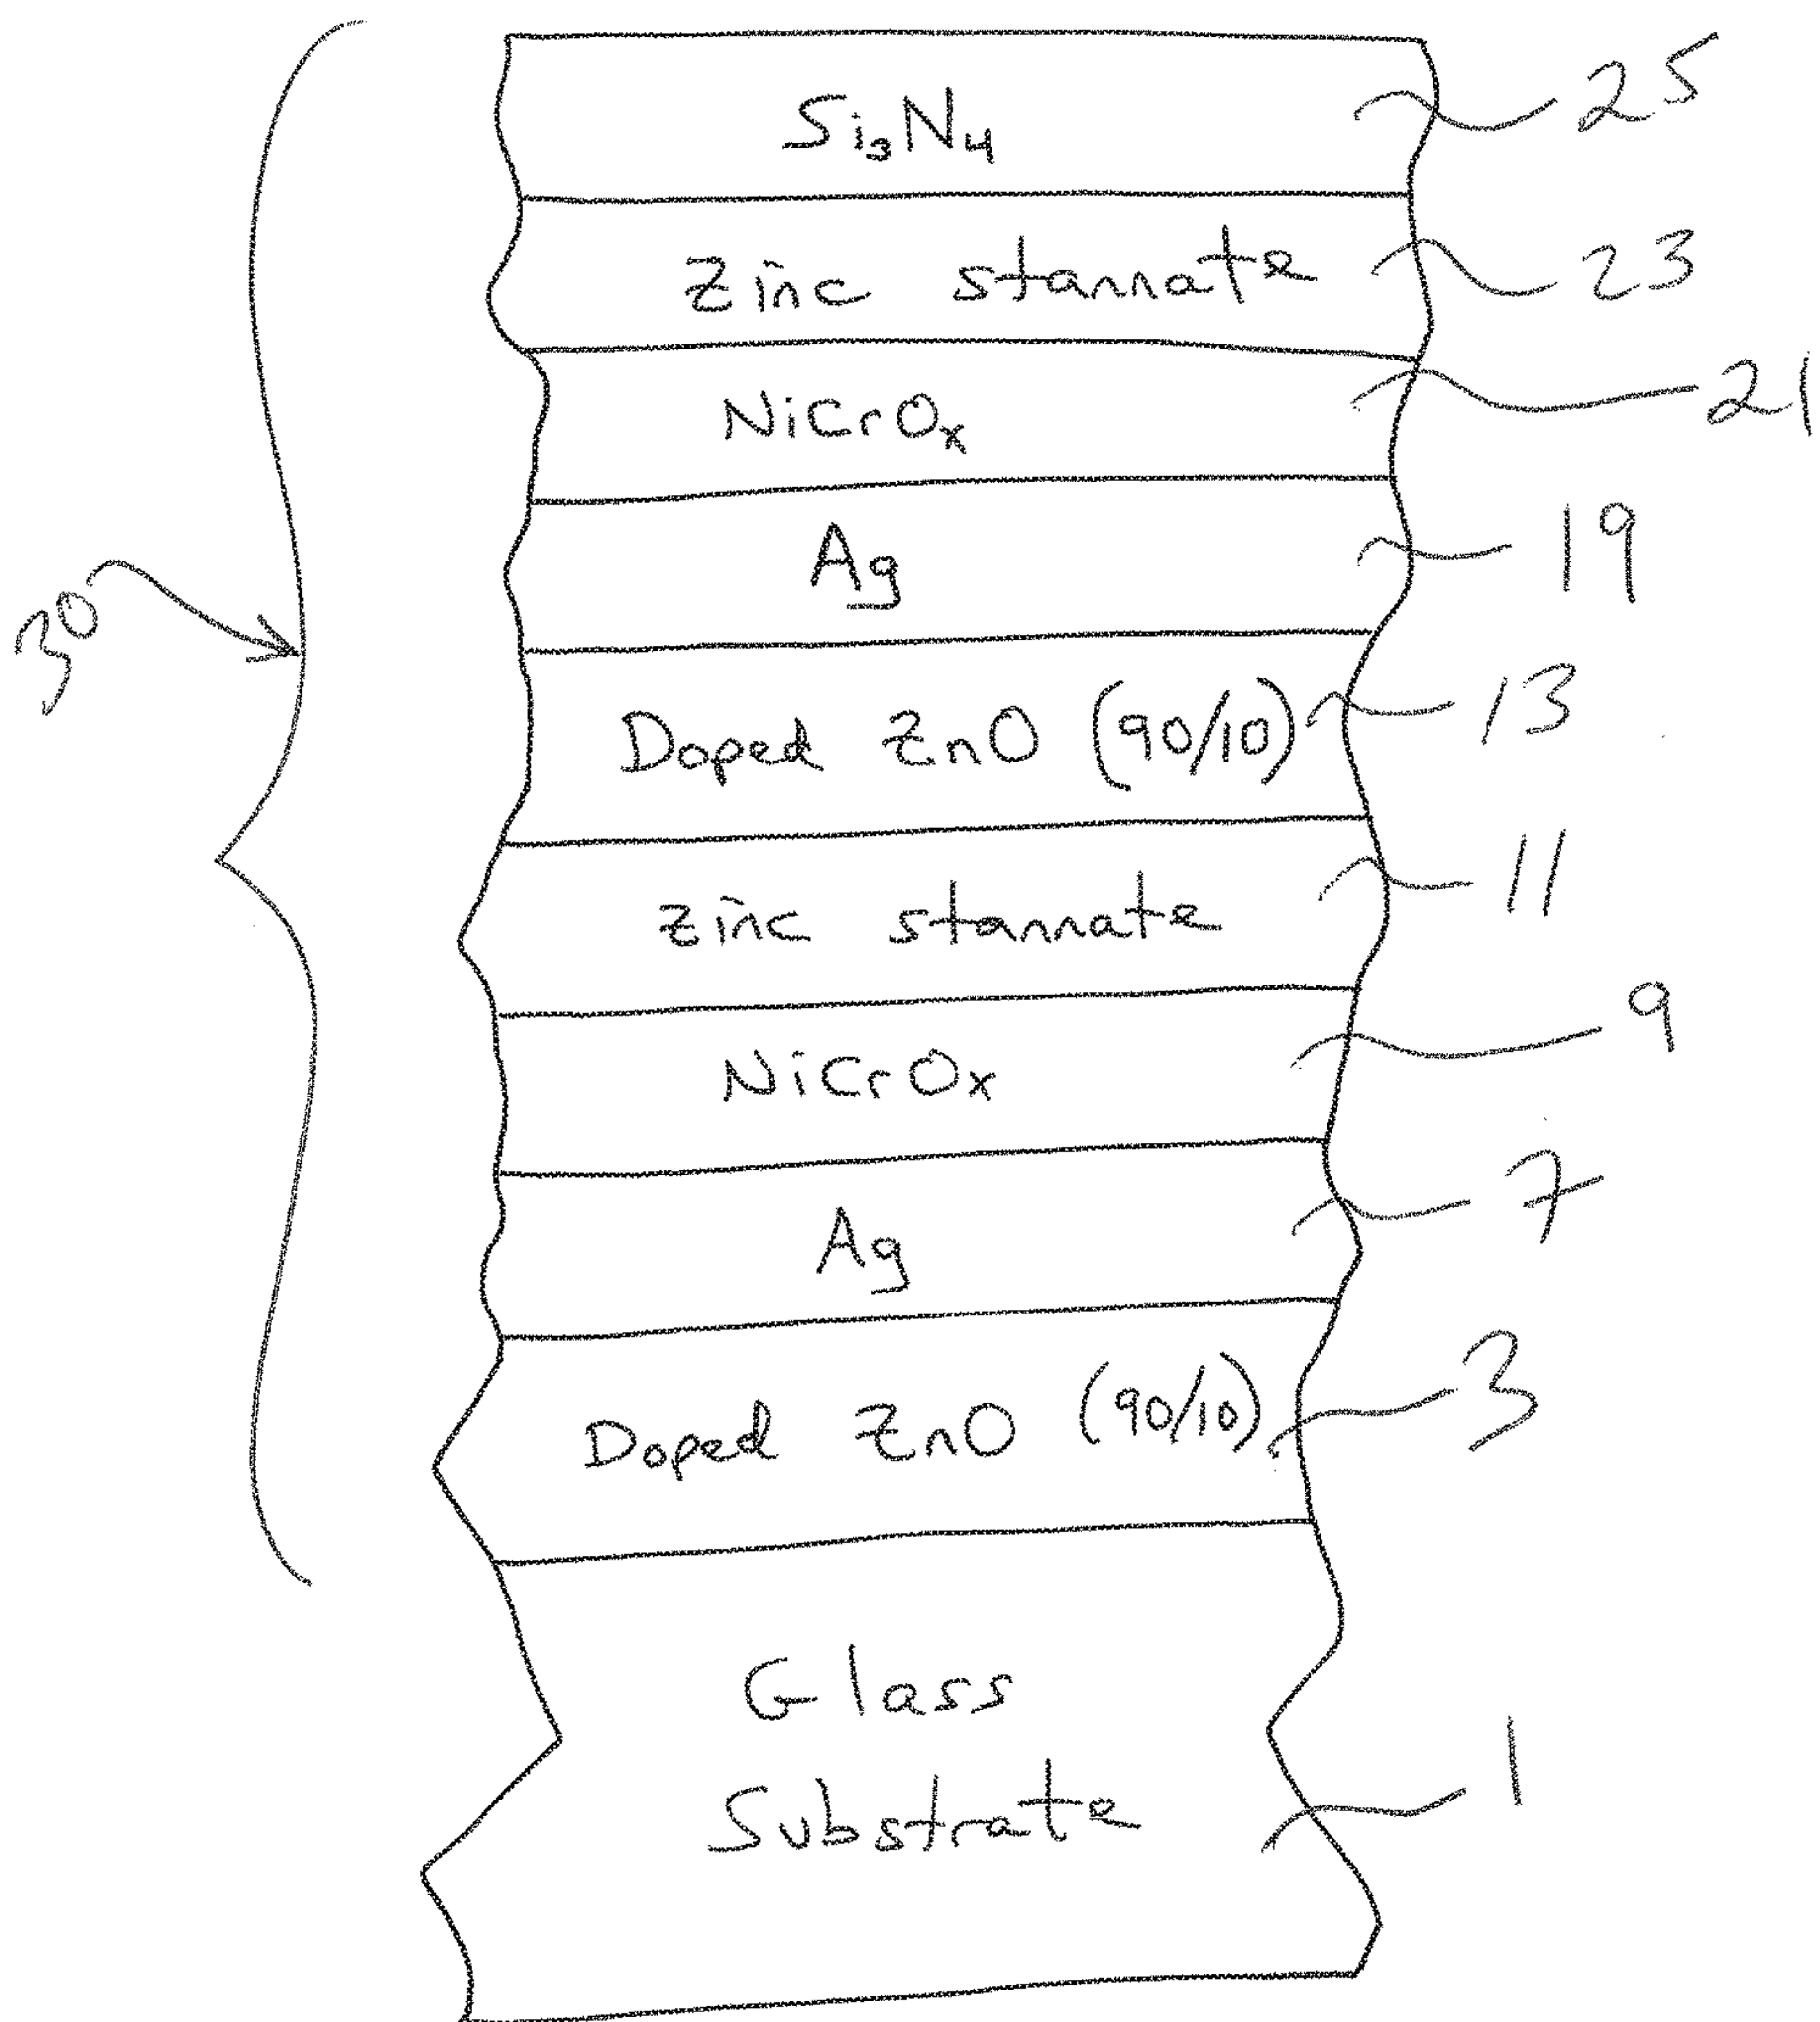 Si₃N₄ 25
Zinc stannate 23
NiCrOₓ 21
Ag 19
30
Doped ZnO (90/10) 13
Zinc stannate 11
NiCrOx 9
Ag 7
Doped ZnO (90/10) 3
Glass
Substrate 1